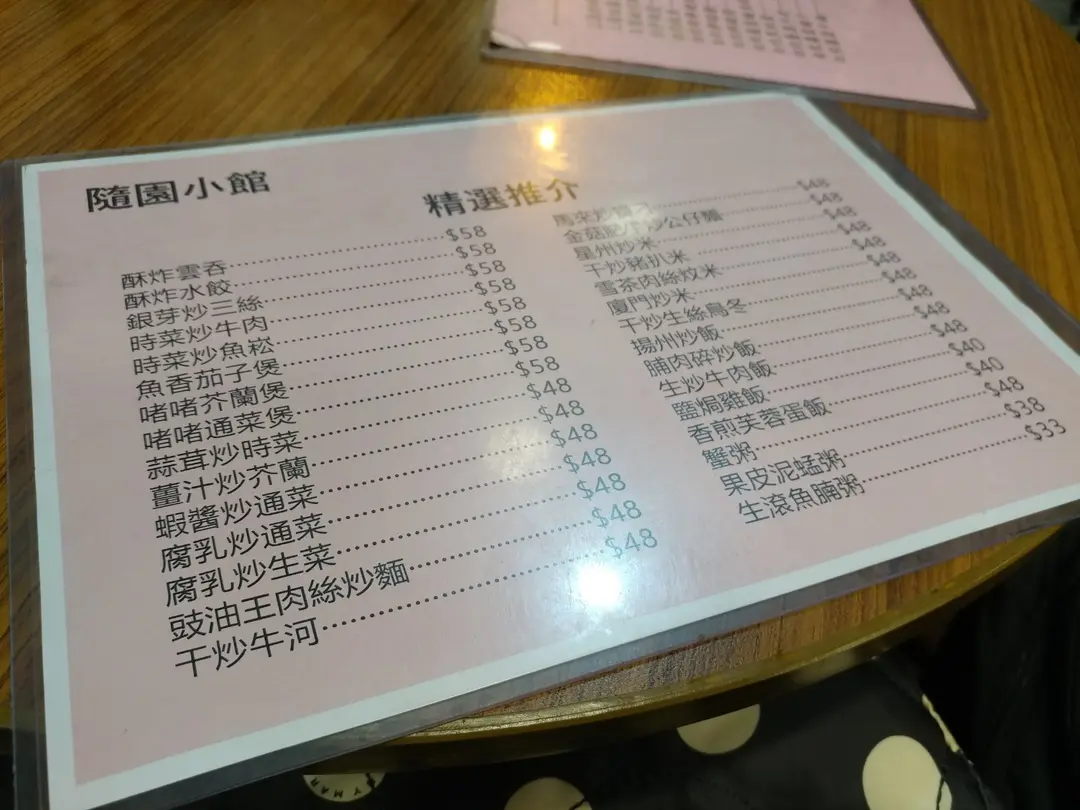 隨園小館
精選推介
酥炸雲吞 $58
酥炸水餃 $58
銀芽炒三絲 $58
時菜炒牛肉 $58
時菜炒魚崧 $58
魚香茄子煲 $58
啫啫芥蘭煲 $58
啫啫通菜煲 $58
蒜茸炒時菜 $48
薑汁炒芥蘭 $48
蝦醬炒通菜 $48
腐乳炒通菜 $48
腐乳炒生菜 $48
豉油王肉絲炒麵 $48
干炒牛河 $48
馬來炒 $48
金菇 炒公仔麵 $48
星州炒米 $48
干炒豬扒米 $48
雪茶肉絲炆米 $48
廈門炒米 $48
干炒生絲烏冬 $48
揚州炒飯 $48
脯肉碎炒飯 $48
生炒牛肉飯 $48
鹽焗雞飯 $40
香煎芙蓉蛋飯 $40
蟹粥 $48
果皮泥蜢粥 $38
生滾魚腩粥 $33